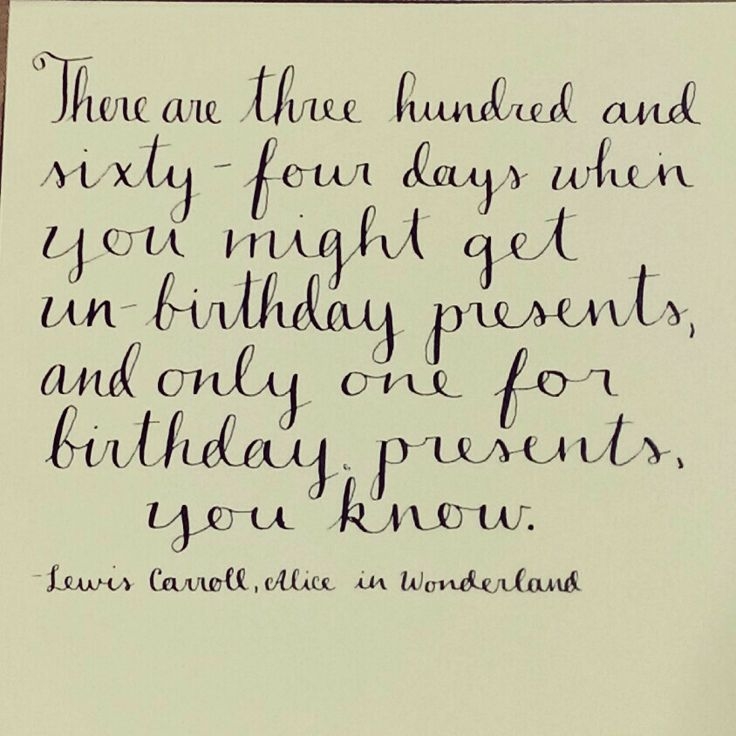 There are three hundred and
sixty-four days when
you might get
un-birthday presents,
and only one for
birthday presents,
you know.
-Lewis Carroll, Alice in Wonderland